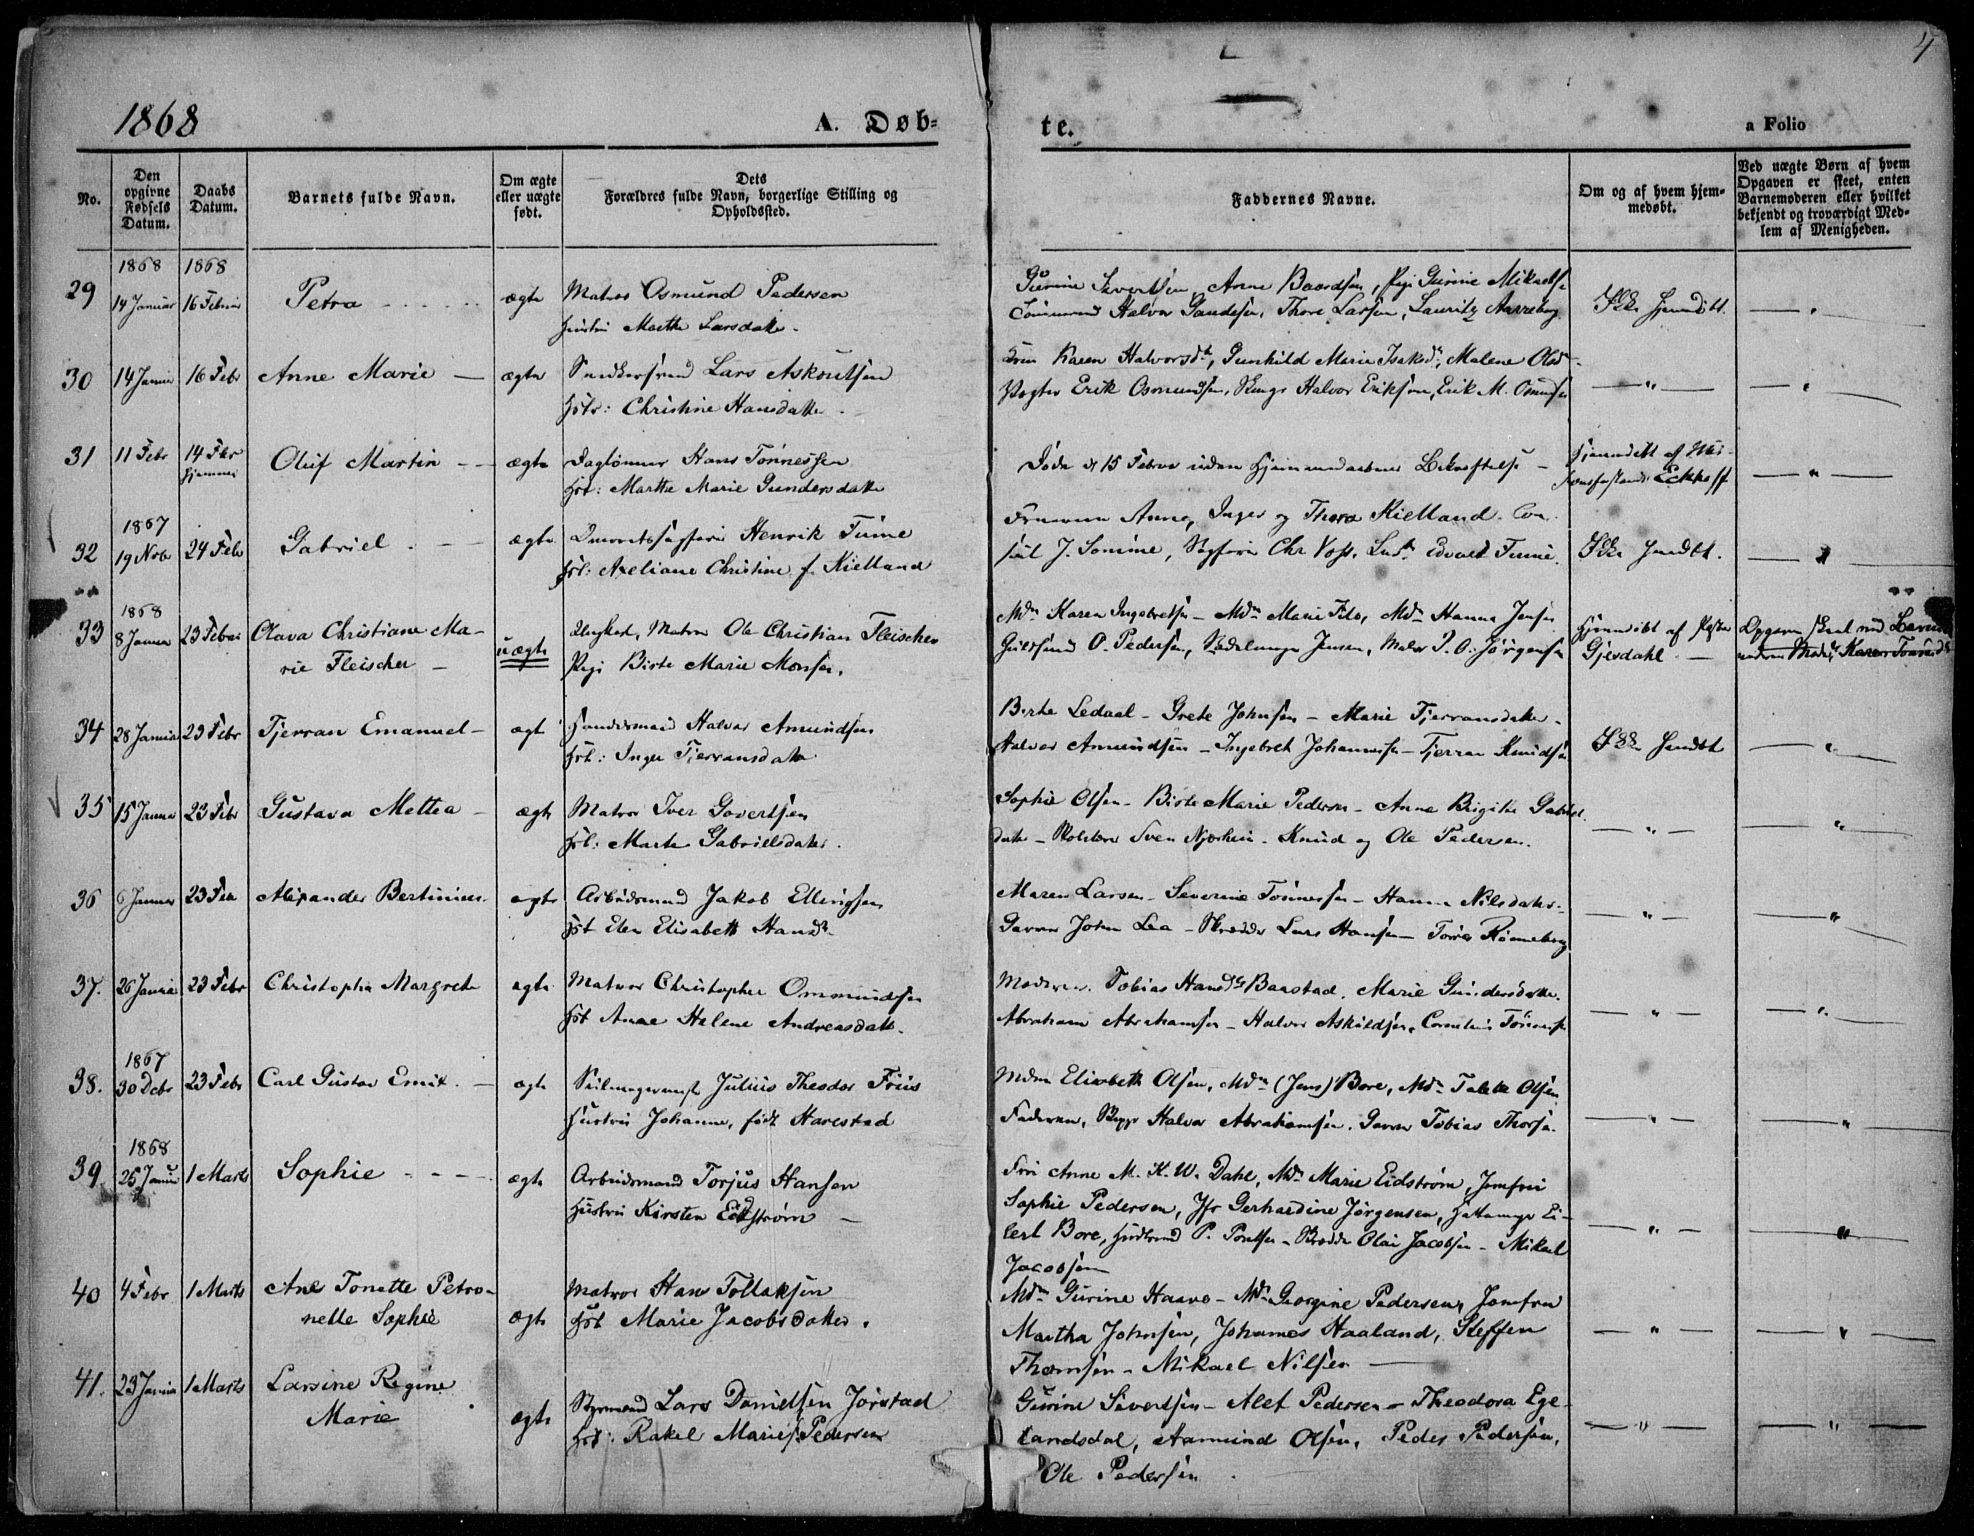 4
1868
A. Døb-
te.
a Folio
No.
Den opgivne Fødsels Datum.
Daabs Datum.
Barnets fulde Navn.
Om ægte eller uægte født.
Dets Forældres fulde Navn, borgerlige Stilling og Opholdssted.
Faddernes Navne.
Om og af hvem hjemmedøbt.
Ved uægte Børn af hvem Opgaven er skeet, enten Barnemoderen eller hvilket bekjendt og troværdigt Medlem af Menigheden.
1868 1868
29 14 Januar 16 Februar Petra ægte Matros Osmund Pedersen
Hustru Marthe Larsdatter
Gurine Sivertsen, Anne Baardsen, Pige Gurine Mikaels
Halvor Sandesen, Thore Larsen, Lauritz Aareberg
Ikke hjemdøbt
30 14 Januar 16 Febr Anne Marie ægte Lars Askoutsen
Hstr: Christine Hansdatter
Karen Halvorsdtr, Gunhild Marie Isaksdr, Malene Olsd
Erik Osmundsen, Halvor Eriksen, Erik M. Osmundsen
31 11 Febr 14 Febr Hjemme Oluf Martin ægte Daglønner Hans Tønnessen
Hst: Marthe Marie Gundersdatter
Døde d 15 Februar uden
Hjemmedøbt af
Eckhoff
1867
32 19 Nob 24 Feb Gabriel ægte Henrik Finne
Hst: Axeliane Christine f. Kielland
Anne, Inger og Thora Kielland. Con-
sul J. Sømme, Sagfører Chr Voss, Edvard Finne
Ikke hjemdøbt.
1868
33 8 Januar 23 Februar Olava Christiane Ma-
rie Fleischer uægte Ungkarl, Matros Ole Christian Fleischer
Pige Birte Marie Monsen.
Mdm Karen Ingebretsen - Mdm Marie Filo, Mdm Hanna Jensen
Guldsmed O. Pedersen, Jensen, Maler P. O. Jørgensen
Hjemmedøbt af
Gjesdahl
Opgaven skeet ved
34 28 Januar 23 Febr Tjerran Emanuel ægte Handelsmand Halvor Amundsen
Hst: Inger Tjerransdatter
Birte Ledaal - Grete Johnsen - Marie Tjerransdatter
Halvor Amundsen - Ingebret Johannesen - Tjerran Knudsen
Ikke hjemdøbt
35 15 Januar 23 Febr Gustava Mettea ægte Matros Iver Govertsen
Hst: Marte Gabrielsdatter.
Sophie Olsen - Birte Marie Pedersen - Anne Brigitte Gabriels
datter - Skolelærer Sven Njærheim - Knud og Ole Pedersen.
36 6 Januar 23 Feb Alexander Bertinius ægte Arbeidsmand Jakob Ellingsen
Hst Elen Elisabeth Hansdr
Maren Larsen - Severine Tønnessen - Hanne Nilsdatter
Garver John Lea - Skrædder Lars Hansen - Rønneberg
37. 26 Januar 23 Febr Christopha Margrete ægte Matros Christopher Ommundsen
Hst Anne Helene Andreasdatter.
Moderen. Tobias Baastad. Marie Gundersdatter.
Abraham Abrahamsen - Halvor Askildsen, Cornelius Tønnessen
1867
38. 30 Decbr 23 Febr Carl Gustav Emil. ægte Seilmagersvend Julius Theodor Friis
Hustru Johanne, født Harestad
Mdm Elisabeth Olsen, Mdm (Jens) Bore, Mdm Talette Olsen
Faderen, Halvor Abrahamsen. Garver Tobias Thorsen
1868
39. 25 Januar 1 Marts Sophie ægte Arbeidsmand Torjus Hansen
Hustru Kirsten Eidstrøm
Fru Anne M. K. W. Dahl, Mdm Marie Eidstrøm, Jomfru
Sophie Pedersen, Jfr Gerhardine Jørgensen, Hattemager Ei-
lert Bore, P. - Skrædder Olai Jacobsen - Mikael
Jacobsen
40 4 Febr 1 Marts Ane Tonette Petro-
nelle Sophie ægte Matros Hans Tollaksen
Hst Marie Jacobsdatter.
Mdm Gurine Haavo - Mdm Georgine Pedersen, Jomfru
Martha Johnsen, Johannes Haaland, Steffen
Thomsen - Mikael Nilsen
41. 23 Januar 1 Marts Larsine Regine
Marie ægte Styrmand Lars Danielsen Jørstad
Hst: Rakel Marie f. Pedersen
Gurine Sivertsen - Alet Pedersen - Theodora Ege-
landsdal, Aamund Olsen, Peder Pedersen,
Ole Pedersen